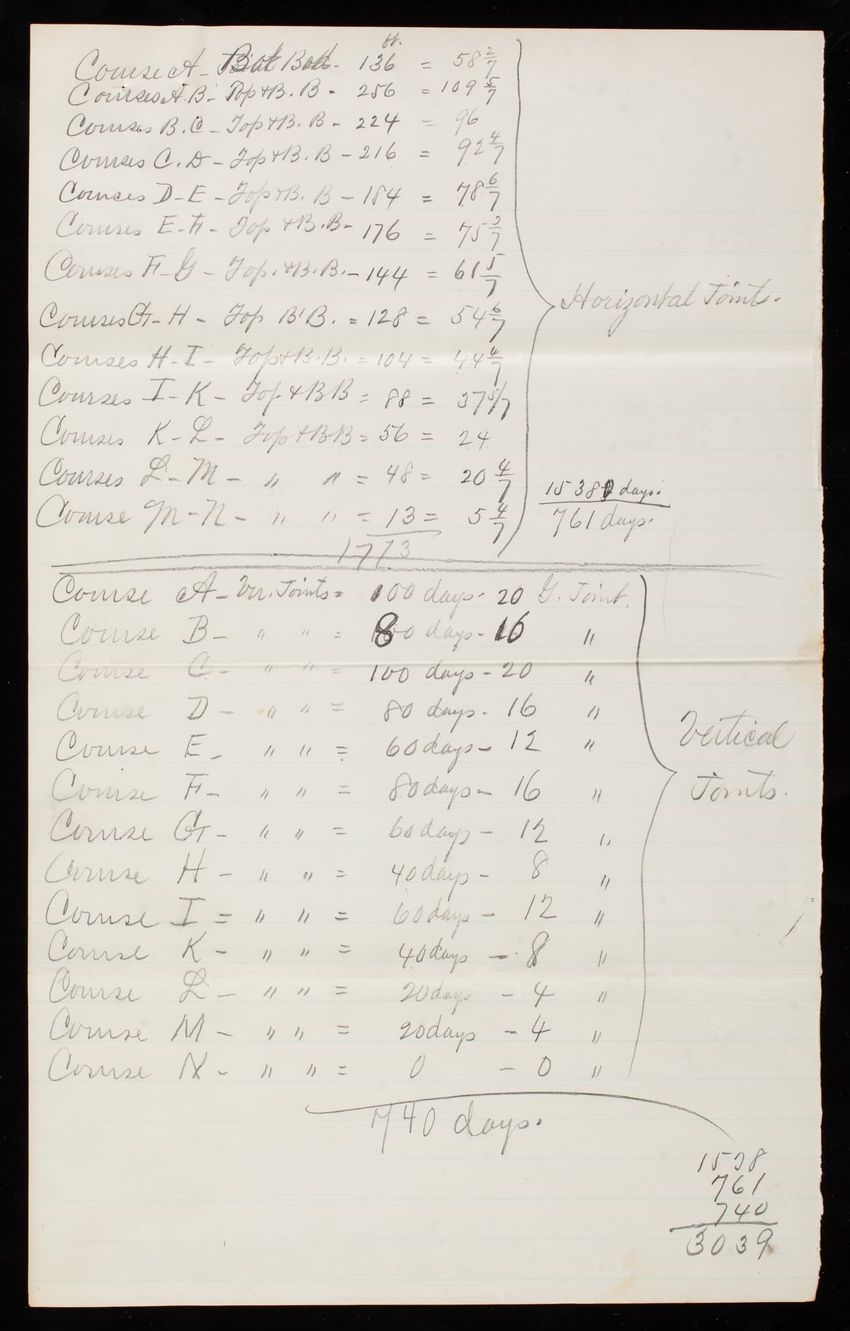 ft.
Course A - Bed. 136 = 58 2/7
Courses A.B - Top & B. B - 256 = 109 5/7
Courses B.C - Top & B. B - 224 = 96
Courses C.D - Top & B. B - 216 = 92 4/7
Courses D-E - Top & B. B - 184 = 78 6/7
Courses E-F - Top & B.B - 176 = 75 3/7
Courses F-G - Top. & B.B. - 144 = 61 5/7
Courses G-H - Top B'B. = 128 = 54 6/7
Courses H-I - Top & B.B. = 104 = 44 4/7
Courses I-K - Top & BB = 88 = 37 5/7
Courses K-L - Top & BB = 56 = 24
Courses L-M - " " = 48 = 20 4/7
Course M-N - " " = 13 = 5 4/7
1773
Horizontal Joints.
1538 days.
761 days.
Course A - Ver. Joints = 100 days - 20 G. Joint.
Course B - " " = 80 days - 16 "
Course C - " " = 100 days - 20 "
Course D - " " = 80 days - 16 "
Course E - " " = 60 days - 12 "
Course F - " " = 80 days - 16 "
Course G - " " = 60 days - 12 "
Course H - " " = 40 days - 8 "
Course I = " " = 60 days - 12 "
Course K - " " = 40 days - 8 "
Course L - " " = 20 days - 4 "
Course M - " " = 20 days - 4 "
Course N - " " = 0 - 0 "
Vertical
Joints.
740 days.
1538
761
740
3039